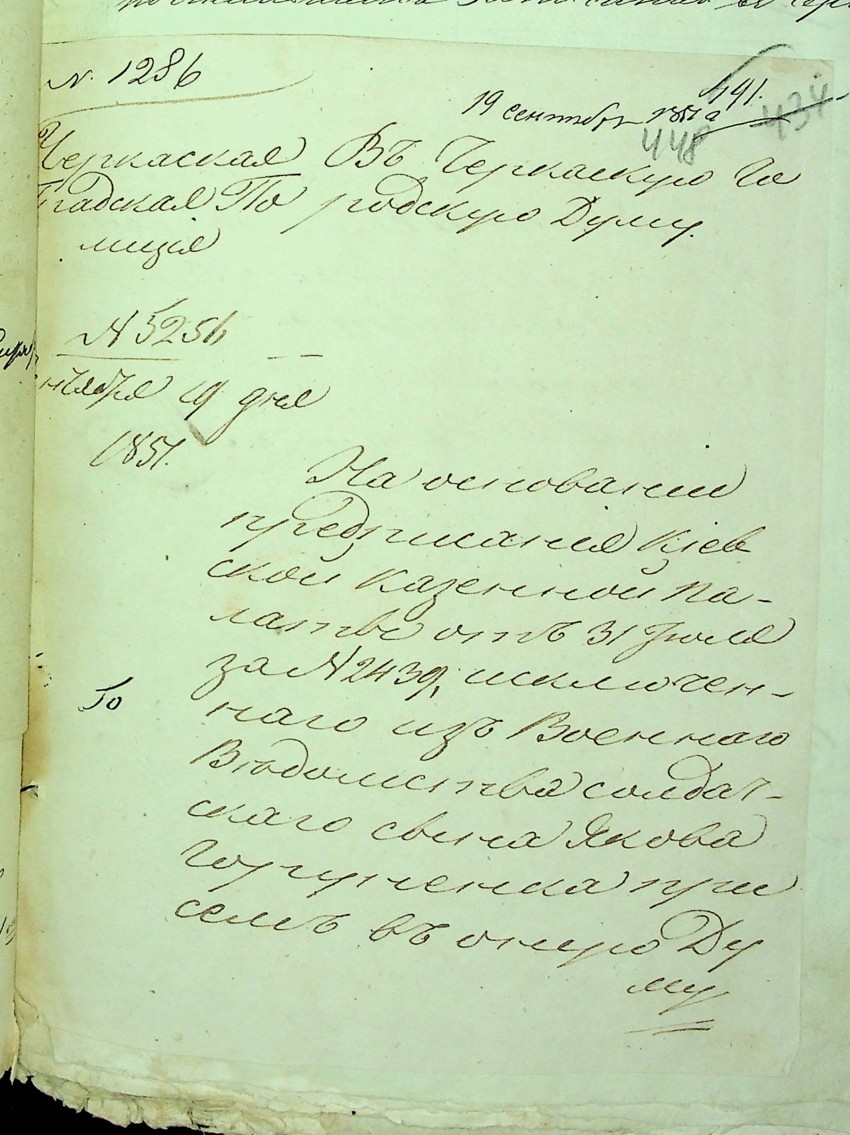 N. 1286
19 сентября 1851 г
441.
448
434
Черкаская
Градская По
лиція
Въ Черкаскую Го
родскую Думу.
N 5256
нтября 19 дня
1851.
На основаніи
предписанія Кіев
ской Казенной Па-
латы отъ 31 Іюля
за N 2439, исключен-
наго изъ Военнаго
Вѣдомства солдат-
скаго сына Якова
при
семъ въ оную Ду
му